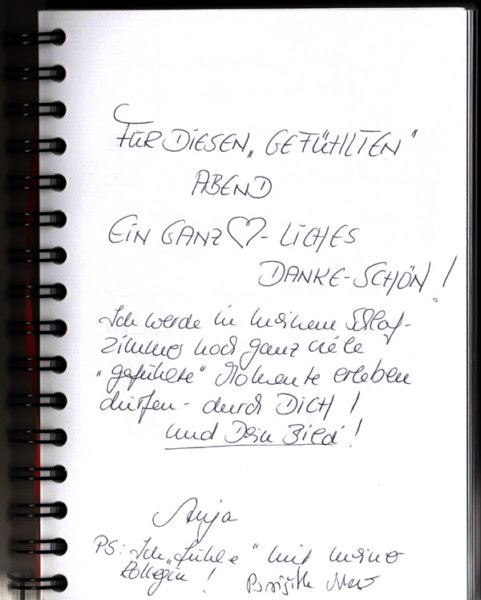 FÜR DIESEN „GEFÜHLTEN"
ABEND
EIN GANZ ♡-LICHES
DANKE-SCHÖN!
Ich werde in meinem Schlaf-
zimmer noch ganz viele
„gefühlte" Momente erleben
dürfen - durch DICH!
und Dein Bild!
Anja
PS: Ich „fühle" mit meiner
Kollegin! Brigitte